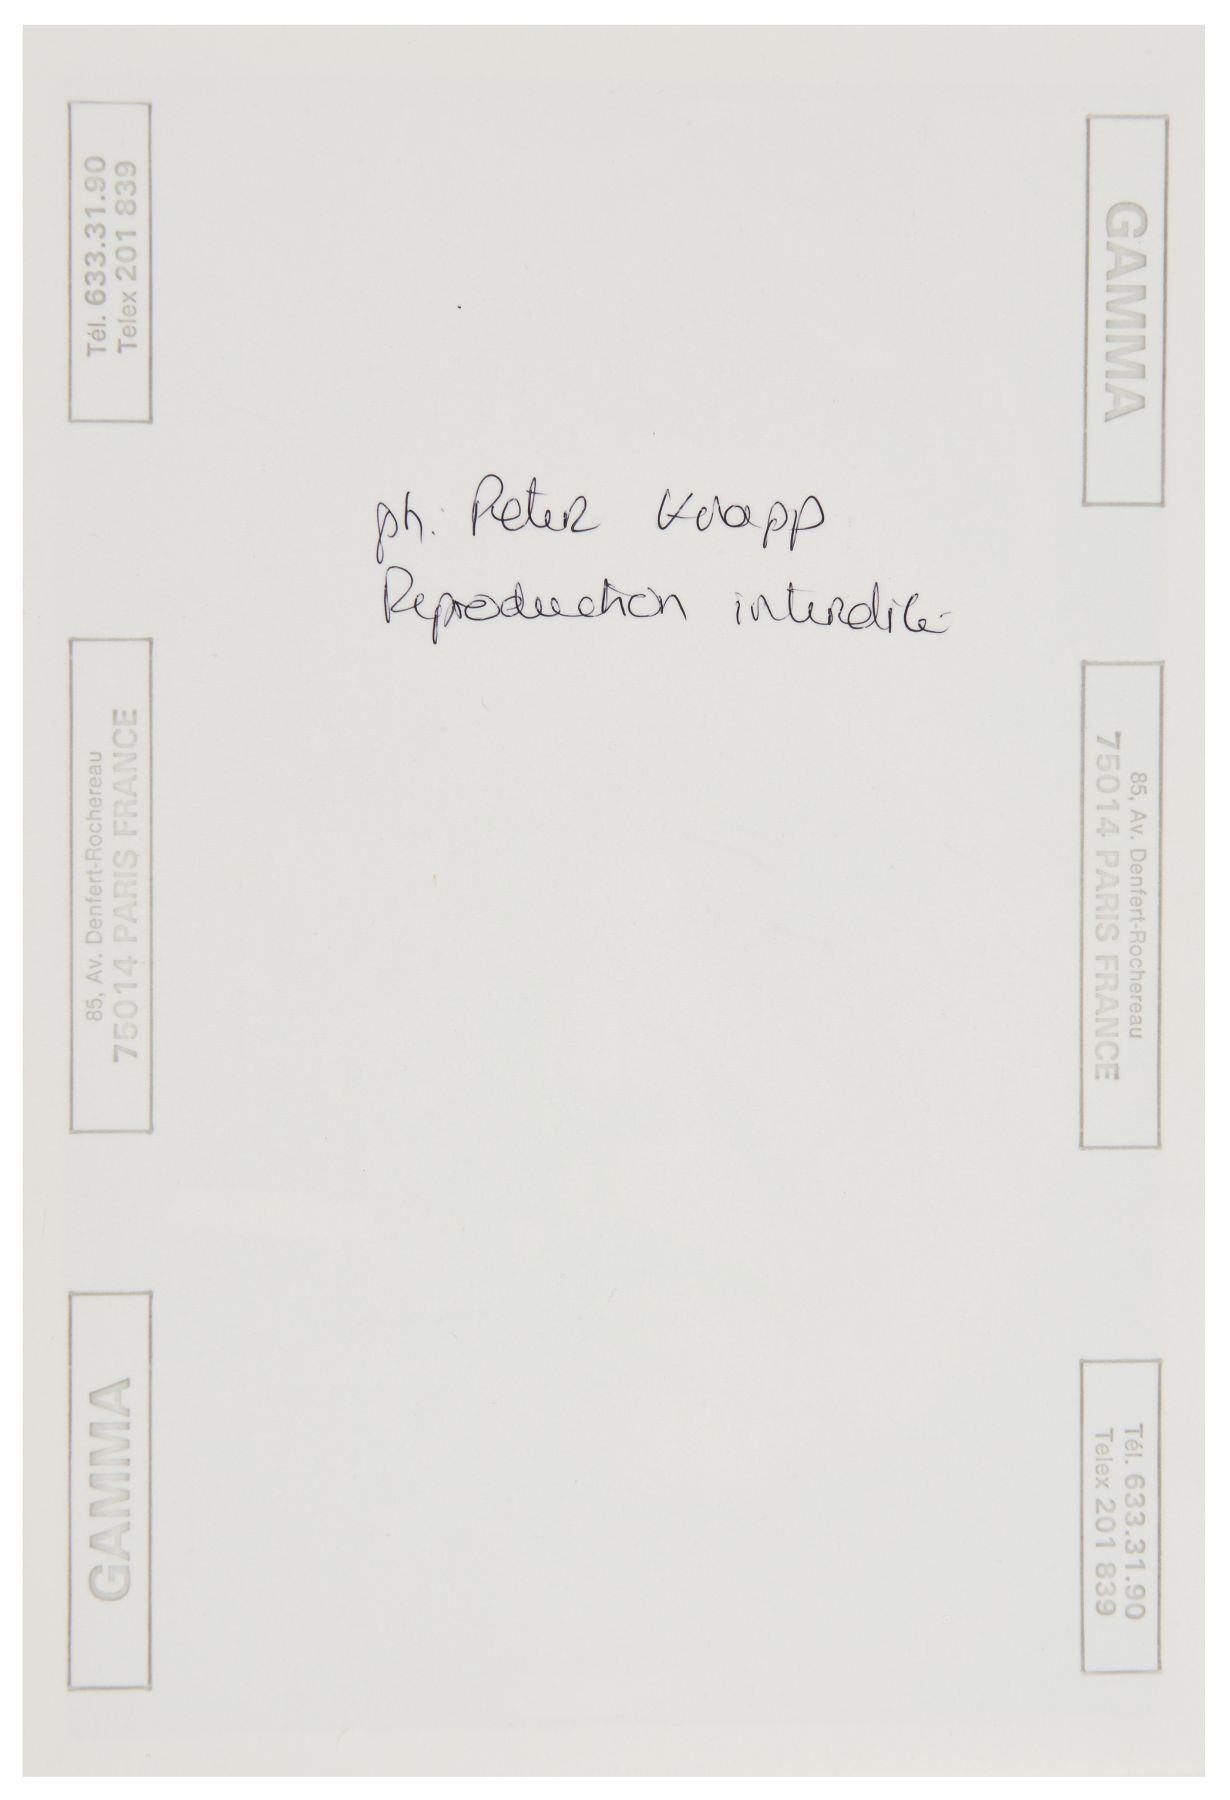 Tél. 633.31.90
Telex 201 839
85, Av. Denfert-Rochereau
75014 PARIS FRANCE
GAMMA
ph. Peter Knapp
Reproduction interdite
GAMMA
85, Av. Denfert-Rochereau
75014 PARIS FRANCE
Tél. 633.31.90
Telex 201 839